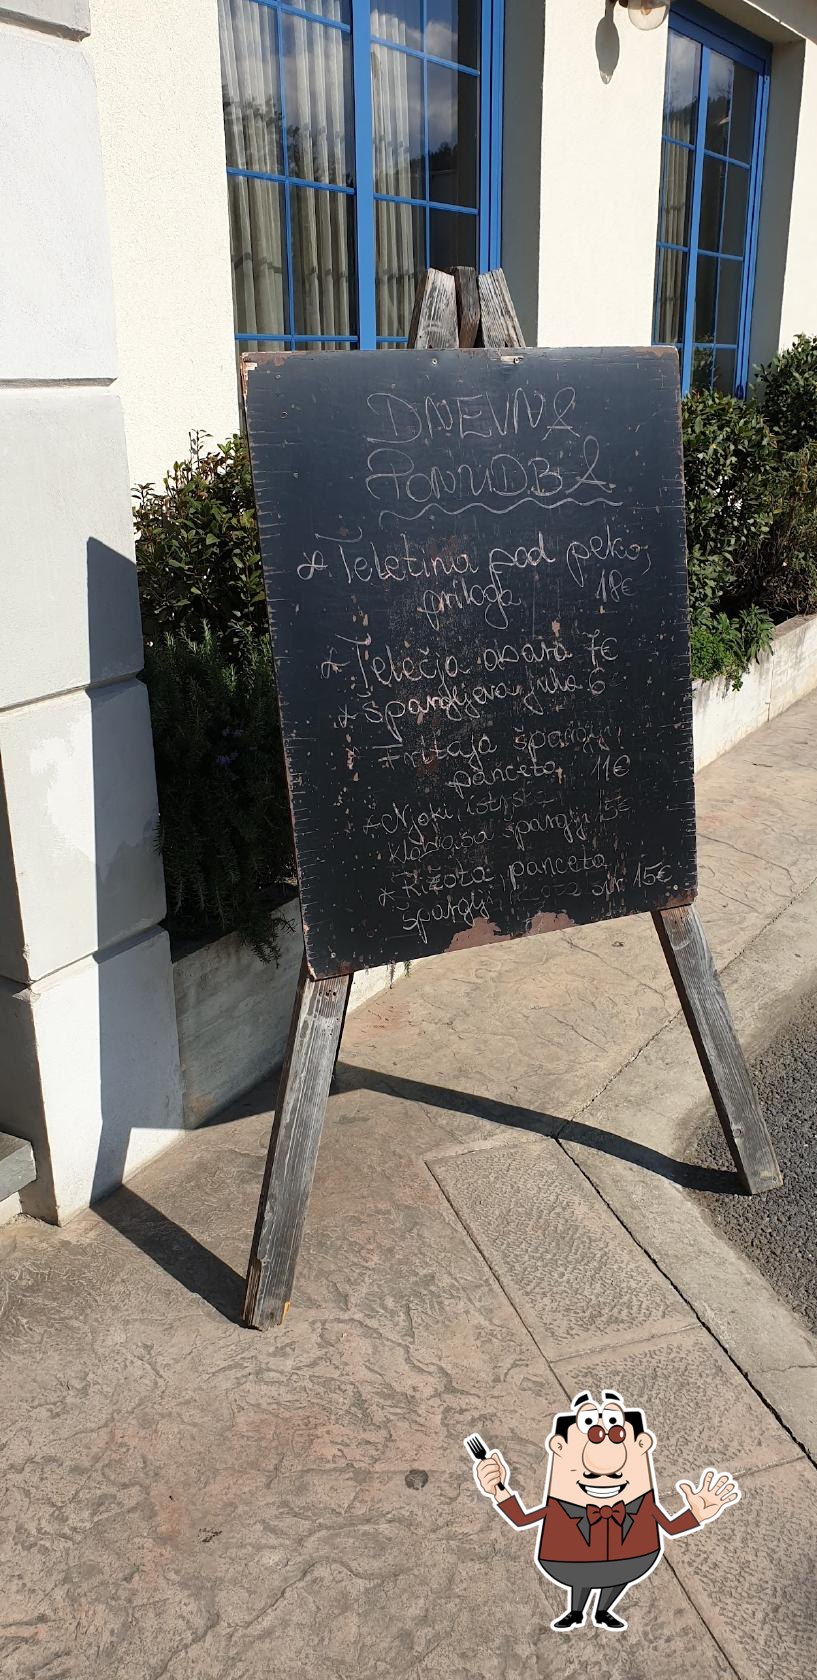 DNEVNA
PONUDBA
* Teletina pod peko,
priloga 18€
* Telečja obara 7€
* Špargljeva juha 6
* Fritaja šparglji,
panceta 11€
* Njoki, istrska
klobasa šparglji 15€
* Rižota panceta,
šparglji sir 15€